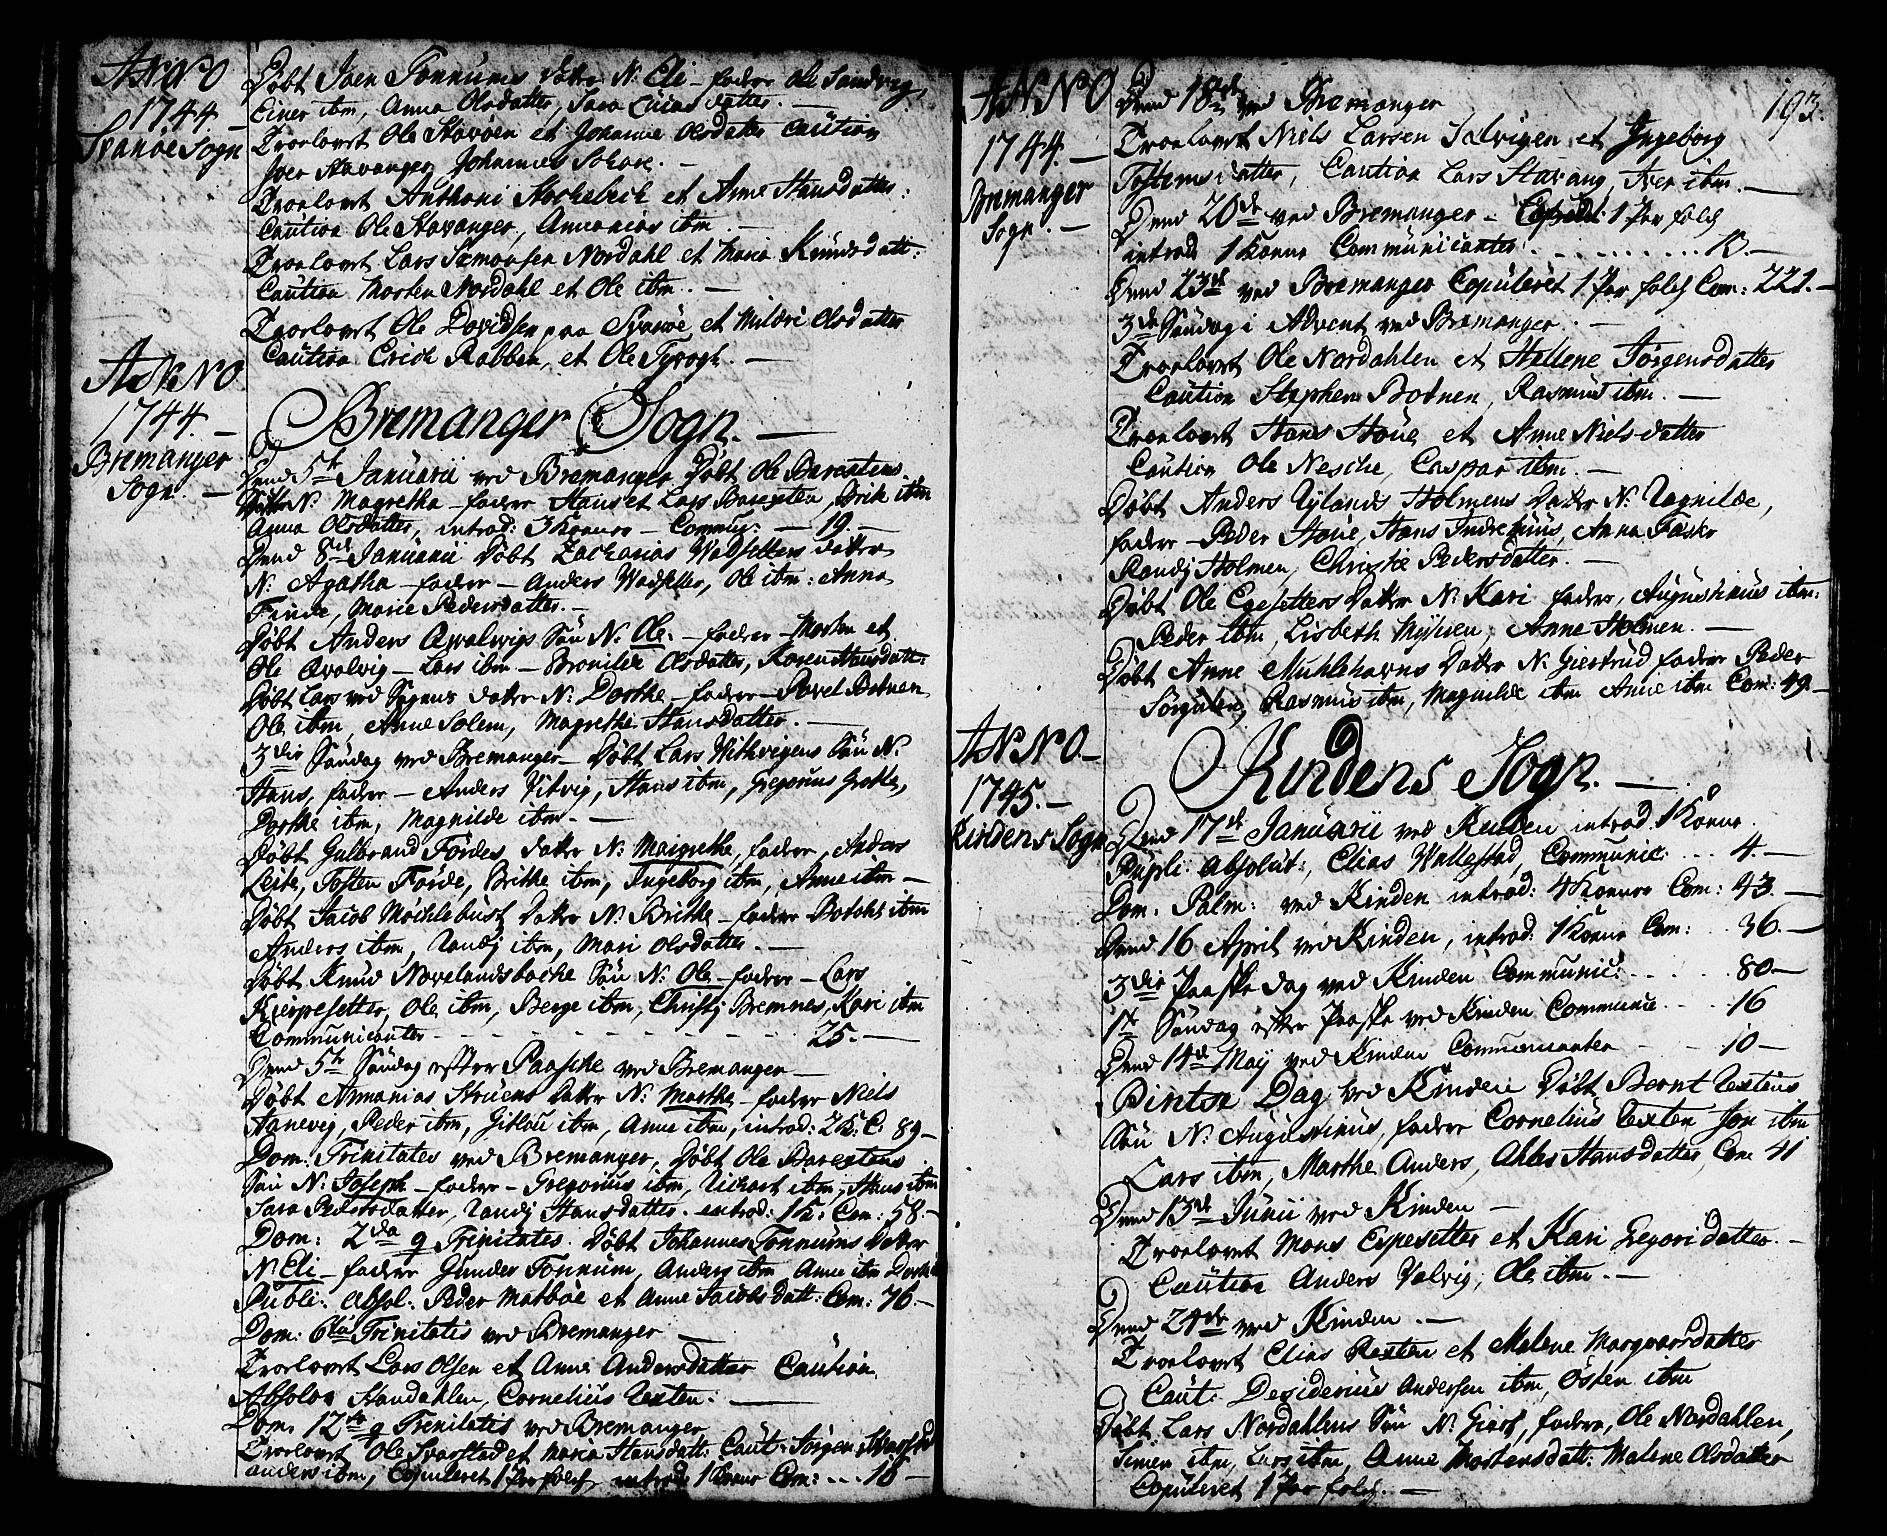 ANNO
1744.
Svanøe Sogn
Døbt Joen Tonnums datter N: Eli – fadder Ole Sandvig,
Einer ibm, Anna Olsdatter, Sara Eliasdatter. —
Troelovet Ole Stavøen et Johanne Olsdatter Caution
Iver Stavanger, Johannes
Troelovet Anthoni et Anne Hansdatter:
Caution Ole Stavanger, Annanias ibm —
Troelovet Lars Simonsen Nordahl et Maria Knudsdatt:
Caution Morten Nordahl et Ole ibm. —
Troelovet Ole Davidsen paa Svanøe et Mildri Olsdatter
Caution Erich Rabben, et Ole —
ANNO
1744. —
Bremanger
Sogn. —
Bremanger Sogn. —
Dend 5te Januarii ved Bremanger Døbt Ole Barestens
datter N: Magrethe – fadder Hans et Lars Baresten, Erik ibm
Anna Olsdatter, introd: 3 Koner – Commu: — 19. —
Dend 8de Januarii Døbt Zacharias Wadsettens datter
N: Agatha – fadder – Anders Wadsetter, Ole ibm: Anna
Finde, Marie Pedersdatter. —
Døbt Anders Qvalvigs Søn N: Ole. – fadder – Morten et
Ole Qvalvig – Lars ibm – Bronilde Olsdatter, Karen Hansdatt:
Døbt Lars ved datter N: Dorthe – fadder – Povel Botnen
Ole ibm, Anne Solem, Magrethe Hansdatter. —
3die Søndag ved Bremanger – Døbt Lars Withvigens Søn N:
Hans, fadder – Anders Vitvig, Hans ibm, Gregorius Grotle,
Dorthe ibm, Magnilde ibm – —
Døbt Gulbrand Førdes datter N: Maigrethe, fadder, Anders
Leite, Tosten Førde, Brithe ibm, Ingeborg ibm, Anne ibm –
Døbt Jacob Møchlebust Datter N: Brithe – fadder Botolv ibm
Anders ibm, Randj ibm, Mari Olsdatter. —
Døbt Knud Novelandsbache Søn N: Ole – fadder – Lars
Kierpesetter, Ole ibm, Berge ibm, Christj Bremnes, Kari ibm
Communicanter – – – – – – – – 25. —
Dend 5te Søndag efter Paasche ved Bremanger —
Døbt Annanias Datter N: Marthe – fadder Niels
Hanevig, Peder ibm, Giklou ibm, Anne ibm, introd: 2 K: C: 89 –
Dom: Trinitates ved Bremanger, Døbt Ole Barestens
Søn N: Joseph – fadder – Gregorius ibm, Richart ibm, Hans ibm
Sara Pedersdatter, Randj Hansdatter. introd: 1 K: Com: 58. –
Dom: 2da p Trinitates. Døbt Johannes Tonnums Datter
N: Eli – fadder Gunder Tonnum, Anders ibm Anne ibm Dorthe
Publi: absol: Peder Matbøe et Anne Jacobsdatt: Com: 76. –
Dom: 6ta Trinitatis ved Bremanger —
Troelovet Lars Olsen et Anne Andersdatter Caution
Absolon Standahlen, Cornelius Texten. —
Dom: 12te p Trinitatis ved Bremanger
Troelovet Ole Svarstad et Maria Hansdatt: Caut: Jørgen Svarstad
anders ibm, Copuleret 1 Par folch introd 1 Kone Com: ... 16 –
ANNO
1744. —
Bremanger
Sogn. —
193.
Dend 18de ved Bremanger
Troelovet Niels Larsen Salvigen et Ingeborg
Tostensdatter, Caution Lars Stavang, Iver ibm. —
Dend 20de ved Bremanger – Copulert: 1 Par folch
introd 1 Kone Communicanter. . . . . . . . . 13. —
Dend 23de ved Bremanger Copuleret 1 Par folch Com: 221. –
3de Søndag i Advent ved Bremanger. —
Troelovet Ole Nordahlen et Hellene Jørgensdatter
Caution Stephen Botnen, Rasmus ibm. —
Troelovet Hans Høue et Anne Nielsdatter
Caution Ole Nesche, Caspar ibm. —
Døbt Anders Rylands Holmens Datter N: Ragnilde,
fadder – Peder Høue, Hans Indrehuus, Anna Faske
Randj Holmen, Christie Pedersdatter. —
Døbt Ole Egesetters Datter N: Kari fadder, Augustinus ibm:
Peder ibm, Lisbeth Myhren, Anne Holmen. —
Døbt Anne Muhlehavns Datter N: Giertrud fadder Peder
Sørgulen, Rasmus ibm, Magnilde ibm Anne ibm Com: 49. –
ANNO –
1745. —
Kindens Sogn
Kindens Sogn. —
Dend 17de Januarii ved Kinden introd 1 Kone.
Publi: Absolut:, Elias Wallestad, Communic: ... 4. —
Dom: Palm: ved Kinden introd: 4 Koner Com: 43. —
Dend 16 April ved Kinden, introd: 1 Kone Com: .. 36. —
3die Paaske dag ved Kinden Communic: . . . . 80 —
1te Søndag efter Paaske ved Kinden Communic . . . 16
Dend 14de Maij ved Kinden Communicanter – – 10 —
Pintse Dag ved Kinden Døbt Bernt Textens
Søn N: Augustinus, fadder Cornelius Texten Jon ibm
Lars ibm, Marthe Anders, Ahles Hansdatter, Com 41
Dend 13de Junii ved Kinden —
Troelovet Mons Espesetter et Kari Gregoridatter. —
Caution Anders Valvig, Ole ibm. —
Dend 24de ved Kinden. —
Troelovet Elias Rexten et Malene Marqvarsdatter
Caut: Desiderius Andersen ibm, Østen ibm
Døbt Lars Nordahlens Søn N: Giert, fadder, Ole Nordahlen,
Simen ibm, Lars ibm, Anne Mortensdatt: Malene Olsdatter
Copuleret 1 Par folch. —